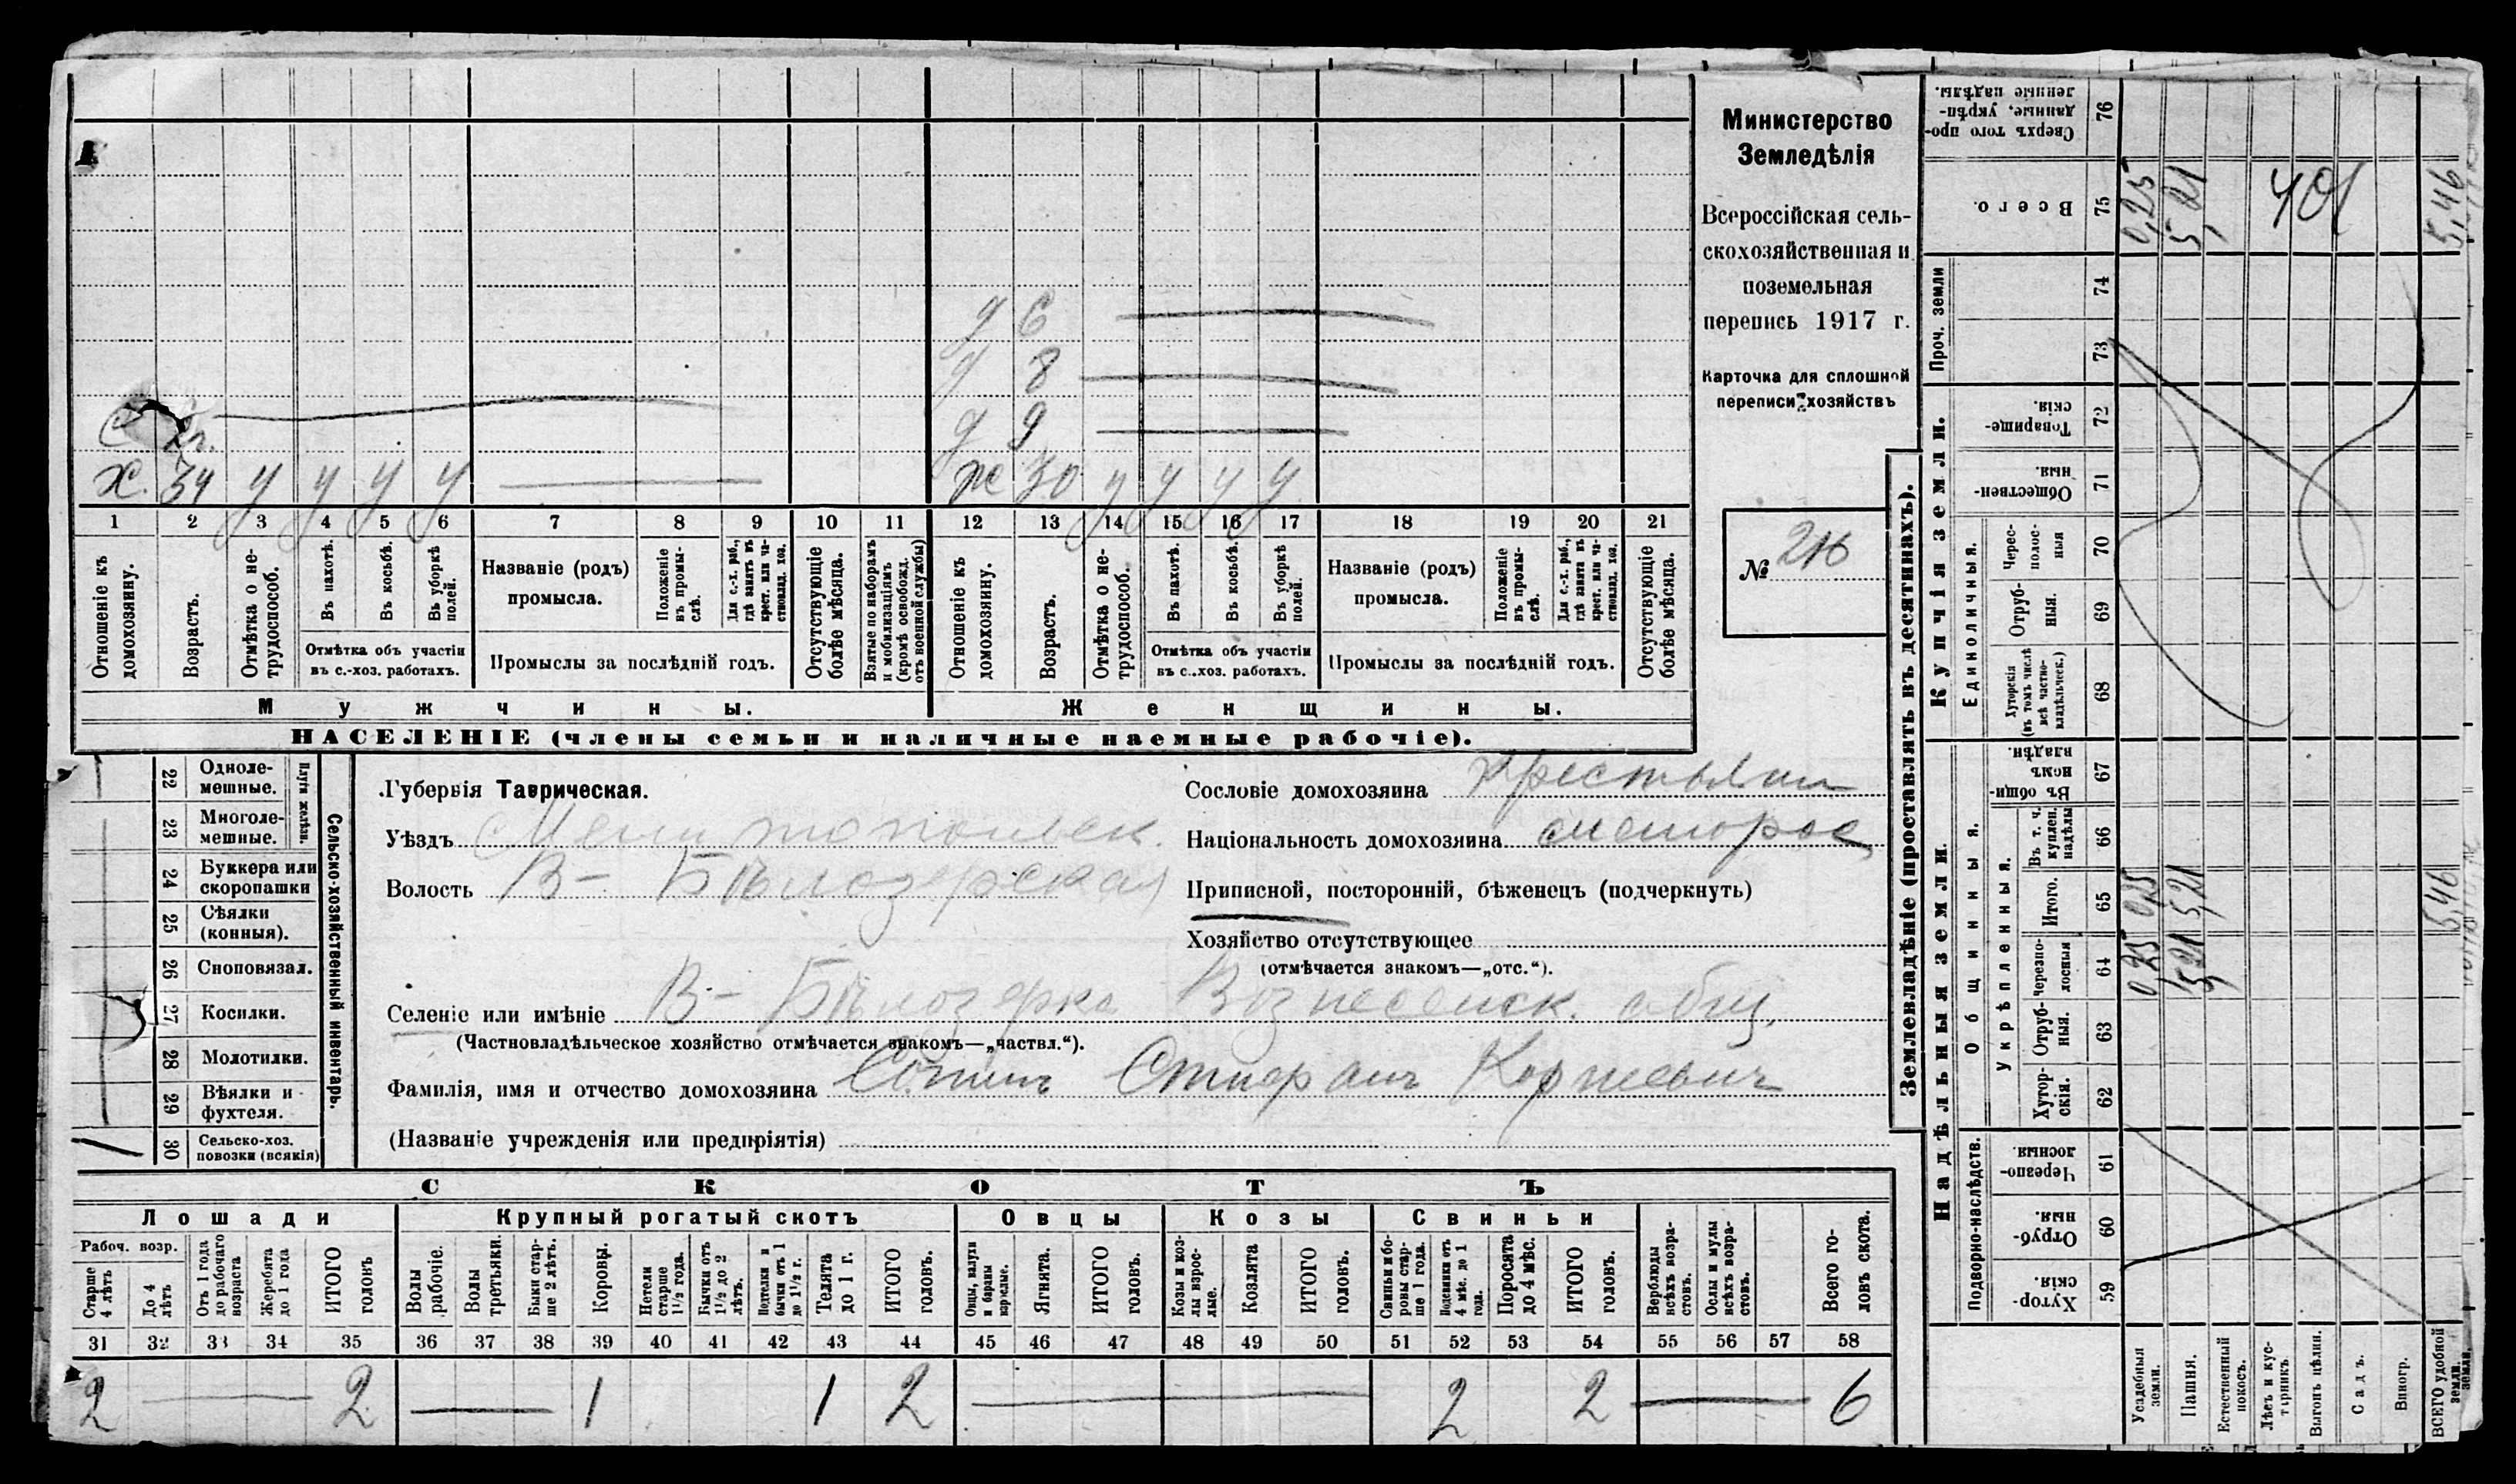 Министерство
Земледѣлія
Всероссійская сель-
скохозяйственная и
поземельная
перепись 1917 г.
Карточка для сплошной
переписи хозяйствъ
№ 216
д 6
д 8
д 9
с 2 г.
х. 34 у у у у
ж 30 у у у у
1 2 3 4 5 6 7 8 9 10 11 12 13 14 15 16 17 18 19 20 21
Отношеніе къ домохозяину.
Возрастъ.
Отмѣтка о не-трудоспособ.
Въ пахотѣ.
Въ косьбѣ.
Въ уборкѣ полей.
Отмѣтка объ участіи
въ с.-хоз. работахъ.
Названіе (родъ)
промысла.
Положеніе въ промы-слѣ.
Для с.-х. раб., гдѣ занятъ въ крест. или ча-ствовлад. хоз.
Промыслы за послѣдній годъ.
Отсутствующіе болѣе мѣсяца.
Взятые по наборамъ и мобилизаціямъ (кромѣ освобожд. отъ военной службы)
Отношеніе къ домохозяину.
Возрастъ.
Отмѣтка о не-трудоспособ.
Въ пахотѣ.
Въ косьбѣ.
Въ уборкѣ полей.
Отмѣтка объ участіи
въ с.-хоз. работахъ.
Названіе (родъ)
промысла.
Положеніе въ промы-слѣ.
Для с.-х. раб., гдѣ занята въ крест. или ча-ствовлад. хоз.
Промыслы за послѣдній годъ.
Отсутствующіе болѣе мѣсяца.
Мужчины.
Женщины.
НАСЕЛЕНІЕ (члены семьи и наличные наемные рабочіе).
22 Одноле-мешные.
23 Многоле-мешные.
Плуги желѣзн.
24 Буккера или скоропашки
25 Сѣялки (конныя).
26 Сноповязал.
27 Косилки.
28 Молотилки.
29 Вѣялки и фухтеля.
30 Сельско-хоз. повозки (всякія)
1
Сельско-хозяйственный инвентарь.
Губернія Таврическая.
Уѣздъ Мелитопольск.
Волость В-Бѣлозерская
Сословіе домохозяина крестьянин
Національность домохозяина малорос
Приписной, посторонній, бѣженецъ (подчеркнуть)
Хозяйство отсутствующее
(отмѣчается знакомъ—„отс.“).
Селеніе или имѣніе В-Бѣлозерка Вознесенск. общ.
(Частновладѣльческое хозяйство отмѣчается знакомъ—„частвл.“).
Фамилія, имя и отчество домохозяина Корнеевич
(Названіе учрежденія или предпріятія)
СКОТЪ
Лошади
Крупный рогатый скотъ
Овцы
Козы
Свиньи
Рабоч. возр.
Старше 4 лѣтъ
До 4 лѣтъ
Отъ 1 года до рабочаго возраста
Жеребята до 1 года
ИТОГО головъ
Волы рабочіе.
Волы третьяки.
Быки стар-ше 2 лѣтъ.
Коровы.
Нетели старше 1½ года.
Бычки отъ 1½ до 2 лѣтъ.
Подтелки и бычки отъ 1 до 1½ г.
Телята до 1 г.
ИТОГО головъ.
Овцы, валухи и бараны взрослые.
Ягнята.
ИТОГО головъ.
Козы и коз-лы взрос-лые.
Козлята
ИТОГО головъ.
Свиньи и бо-ровы стар-ше 1 года.
Подсвинки отъ 4 мѣс. до 1 года.
Поросята до 4 мѣс.
ИТОГО головъ.
Верблюды всѣхъ возра-стовъ.
Ослы и мулы всѣхъ возра-стовъ.
Всего го-ловъ скота.
31 32 33 34 35 36 37 38 39 40 41 42 43 44 45 46 47 48 49 50 51 52 53 54 55 56 57 58
2 2 1 1 2 2 2 6
Землевладѣніе (проставлять въ десятинахъ).
Купчія земли.
Надѣльныя земли.
Сверхъ того про-данные, укрѣп-ленные надѣлы. 76
Всего. 75
0,25
5,21
401
5,46
Проч. земли
74
73
Товарище-скія. 72
Обществен-ныя. 71
Единоличныя.
Черес-полос-ныя 70
Отруб-ныя. 69
Хуторскія (въ томъ числѣ всѣ частно-владѣльческ.) 68
Общинныя.
Въ общи-номъ владѣн. 67
Укрѣпленныя.
Въ т. ч. куплен. надѣлы 66
Итого. 65
0,25
5,21
5,46
Черезпо-лосныя 64
0,25
5,21
Отруб-ныя. 63
Хутор-скія. 62
Подворно-наслѣдств.
Черезпо-лосныя. 61
Отруб-ныя. 60
Хутор-скія. 59
Усадебныя земли.
Пашня.
Естественный покосъ.
Лѣсъ и кус-тарникъ.
Выгонъ цѣлин.
Садъ.
Виногр.
ВСЕГО удобной земли.